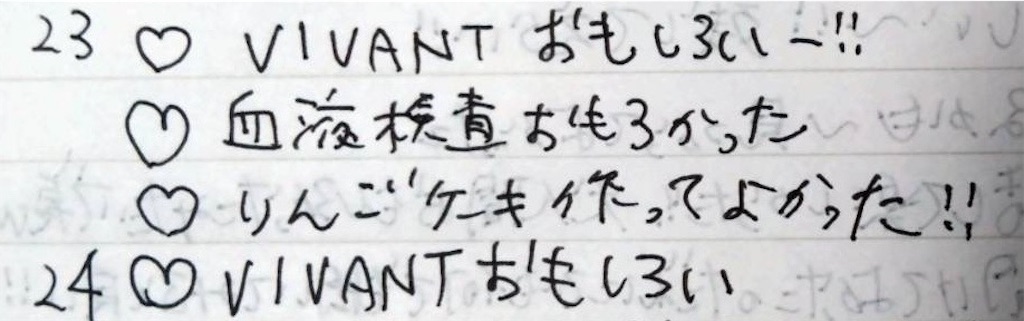 23 ♡ VIVANT おもしろいー!!
♡ 血液検査おもろかった
♡ りんごケーキ作ってよかった!!
24 ♡ VIVANT おもしろい